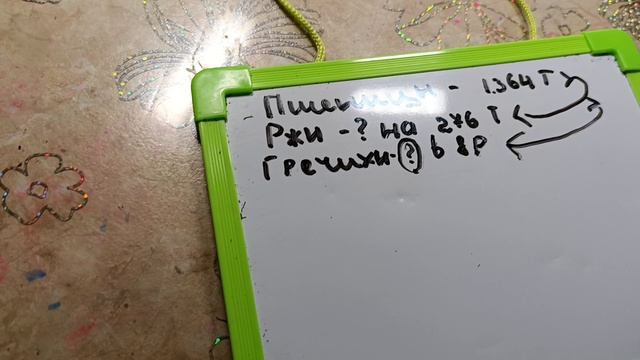 Пшеницы - 1364 Т
Ржи - ? на 276 Т
Гречихи - ? в 8 р